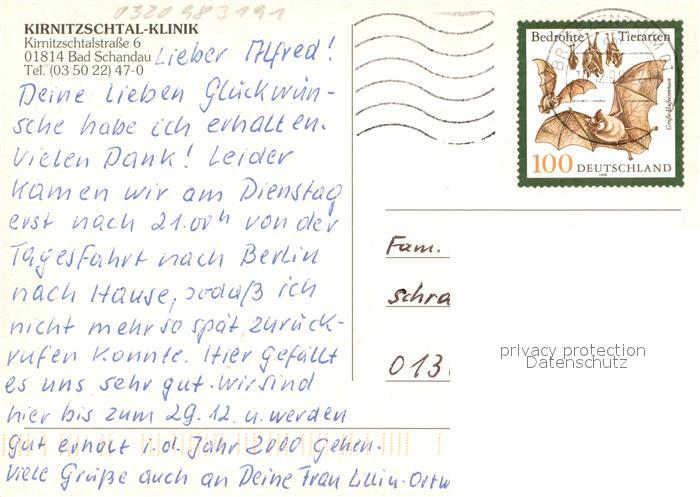 0320983191
KIRNITZSCHTAL-KLINIK
Kirnitzschtalstraße 6
01814 Bad Schandau
Tel. (03 50 22) 47-0
Lieber Alfred!
Deine lieben Glückwün-
sche habe ich erhalten.
Vielen Dank! Leider
kamen wir am Dienstag
erst nach 21.00h von der
Tagesfahrt nach Berlin
nach Hause, sodaß ich
nicht mehr so spät zurück-
rufen konnte. Hier gefällt
es uns sehr gut. Wir sind
hier bis zum 29.12. u. werden
gut erholt i. d. Jahr 2000 gehen.
Viele Grüße auch an Deine Frau
Bedrohte Tierarten
Große Hufeisennase
100 DEUTSCHLAND
Fam.
Schra
013
privacy protection
Datenschutz